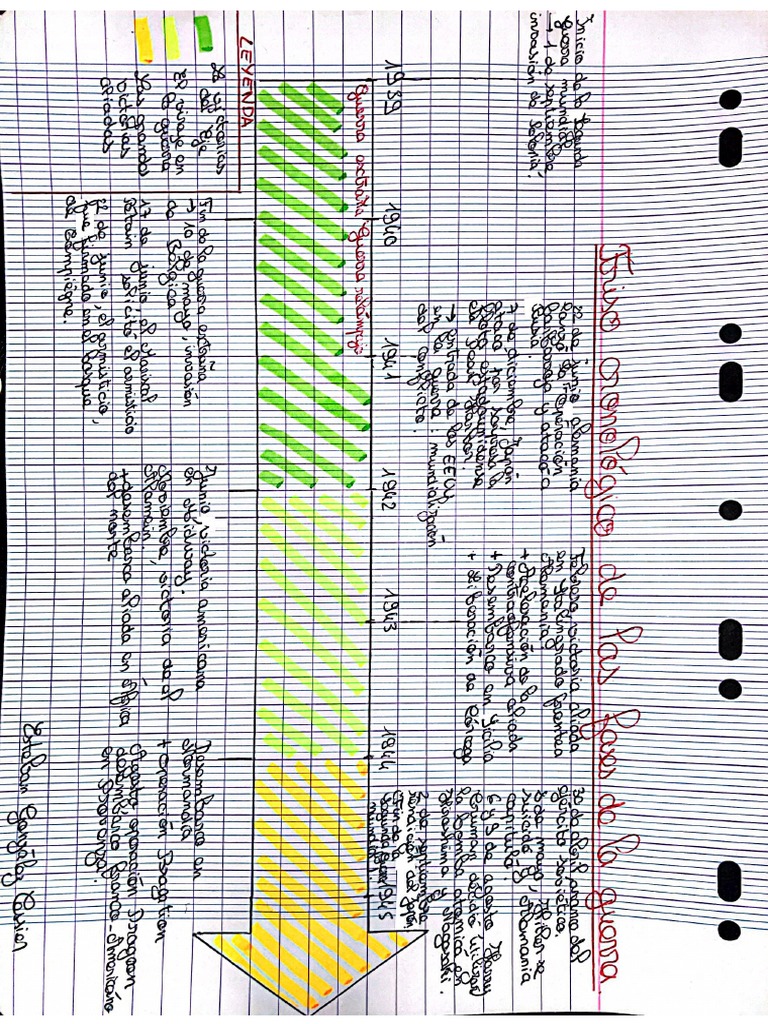 Friso cronológico de las fases de la guerra
Inicio de la segunda
guerra mundial
→ 1 de septiembre,
invasión de Polonia.
22 de junio, Alemania
lanzó la operación
Barbarossa y atacó a
Rusia.
7 de diciembre, Japón
ataca por sorpresa la
flota estadounidense
de Pearl Harbor.
→ entrada de los EEUU
en la guerra: mundialización
del conflicto.
Febrero, victoria aliada
en Stalingrado frente a
Alemania.
+ Aceleración de la
contraofensiva aliada
+ Desembarco en Italia
+ liberación de Córcega
30 de abril, avance del
ejército soviético
8 de mayo, Hitler se
suicida y Alemania
capitula.
6 y 9 de agosto, Harry
Truman decidió utilizar
la bomba atómica en
Hiroshima y Nagasaki.
2 de septiembre,
rendición del Japón
(Fin de la
segunda guerra
mundial).
1939
1940
1941
1942
1943
1944
1945
Guerra extraña
Guerra relámpago
LEYENDA
Las victorias
del Eje
El viraje en
la guerra
Las grandes
victorias
aliadas
Fin de la guerra extraña
→ 10 de mayo, invasión
de Bélgica
17 de junio, el Mariscal
Pétain solicitó el armisticio
22 de junio, el armisticio,
fue firmado en el bosque,
de Compiègne.
Junio, victoria americana
en Midway.
Noviembre, victoria de el
Alamein.
+ desembarco aliado en África
del norte
Desembarco en
Normandía
+ operación Bagration
Agosto operación Dragoon
desembarco franco-americano
en Provenza.
Esteban González Cuvier